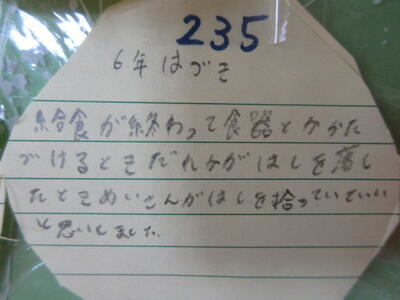 235
6年 はづき
給食が終わって食器とかかた
づけるときだれかがはしを落し
たときめいさんがはしを拾っていていい
と思いました。